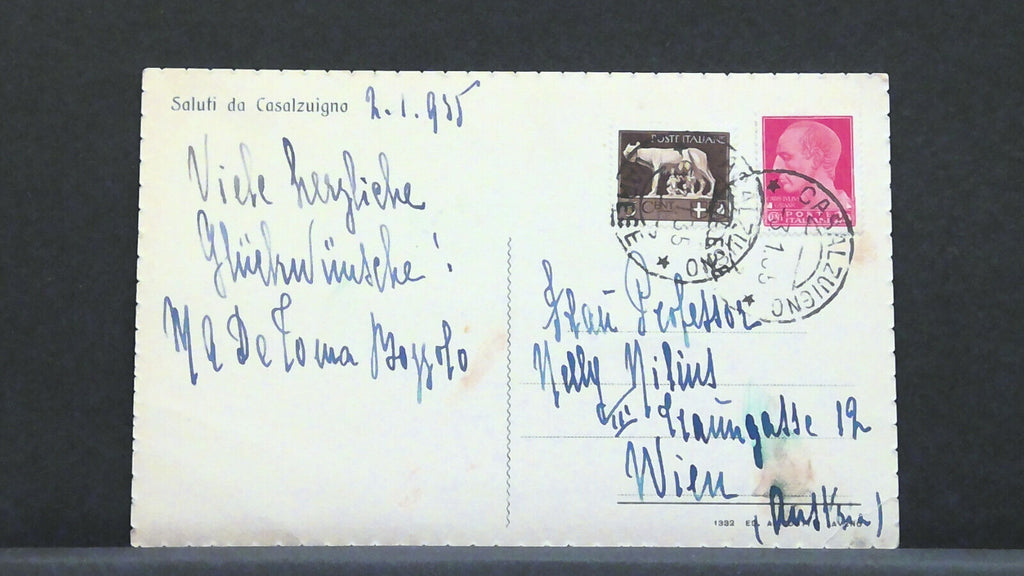 Saluti da Casalzuigno 2.1.935
Viele herzliche
Glückwünsche!
Ma De Toma Bozzolo
POSTE ITALIANE
CENT
POSTE
ITALIANE
CASALZUIGNO
Frau Professor
Nelly Nilius
III Traungasse 12
Wien
(Austria)
1332 ED.